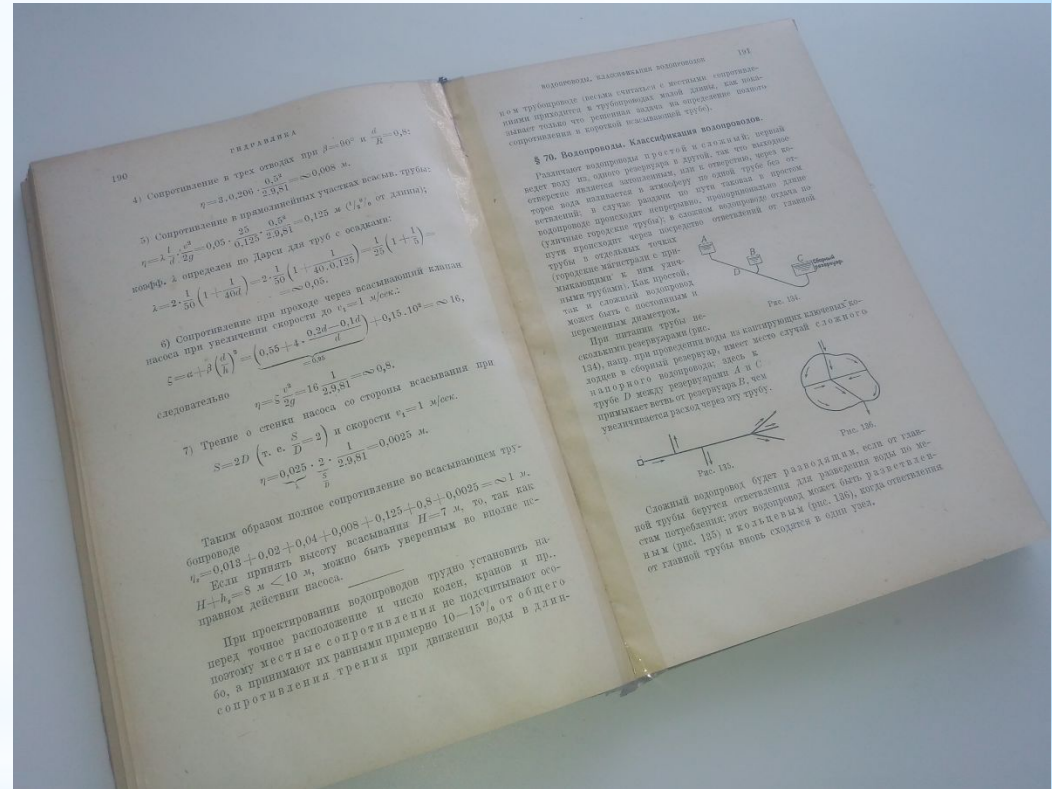 190
ГИДРАВЛИКА
4) Сопротивление в трех отводах при β=90° и d/R=0,8:
η=3.0,206 · 0,5²/2.9,81 = ∞0,008 м.
5) Сопротивление в прямолинейных участках всасыв. трубы:
η=λ l/d · v²/2g = 0,05 · 25/0,125 · 0,5²/2.9,81 = 0,125 м (¹/₂⁰/₀ от длины);
коэфф. λ определен по Дарси для труб с осадками:
λ=2· 1/50 (1+ 1/40d) = 2· 1/50 (1+ 1/40.0,125) = 1/25 (1+ 1/5) =
= ∞0,05.
6) Сопротивление при проходе через всасывающий клапан
насоса при увеличении скорости до v₁=1 м/сек.:
ζ=α+β(d/h)² = (0,55+4· 0,2d—0,1d/d) + 0,15.10² = ∞16,
=0,95
следовательно η=ζ v²/2g = 16 1/2.9,81 = ∞0,8.
7) Трение о стенки насоса со стороны всасывания при
S=2D (т. е. S/D=2) и скорости v₁=1 м/сек.
η=0,025 · 2 · 1/2.9,81 = 0,0025 м.
λ S/D
Таким образом полное сопротивление во всасывающем тру-
бопроводе
=0,013+0,02+0,04+0,008+0,125+0,8+0,0025=∞1 м.
Если принять высоту всасывания H=7 м, то, так как
=8 м <10 м, можно быть уверенным во вполне ис-
правном действии насоса.
При проектировании водопроводов трудно установить на-
перед точное расположение и число колен, кранов и пр.,
поэтому местные сопротивления не подсчитывают осо-
бо, а принимают их равными примерно 10—15⁰/₀ от общего
сопротивления трения при движении воды в длин-
ВОДОПРОВОДЫ. КЛАССИФИКАЦИЯ ВОДОПРОВОДОВ
191
ном трубопроводе (весьма считаться с местными сопротивле-
ниями приходится в трубопроводах малой длины, как пока-
зывает только что решенная задача на определение полного
сопротивления в короткой всасывающей трубе).
§ 70. Водопроводы. Классификация водопроводов.
Различают водопроводы простой и сложный; первый
ведет воду из одного резервуара в другой, так что выходное
отверстие является затопленным, или к отверстию, через ко-
торое вода изливается в атмосферу по одной трубе без от-
ветвлений; в случае раздачи по пути таковая в простом
водопроводе происходит непрерывно, пропорционально длине
(уличные городские трубы); в сложном водопроводе отдача по
пути происходит через посредство ответвлений от главной
трубы в отдельных точках
(городские магистрали с при-
мыкающими к ним улич-
ными трубами). Как простой,
так и сложный водопровод
может быть с постоянным и
переменным диаметром.
A
B
C
D
Сборный
резервуар
Рис. 134.
При питании трубы не-
сколькими резервуарами (рис.
134), напр. при проведении воды из каптирующих ключевых ко-
лодцев в сборный резервуар, имеет место случай сложного
напорного водопровода; здесь к
трубе D между резервуарами A и C
примыкает ветвь от резервуара B, чем
увеличивается расход через эту трубу.
Рис. 135.
Рис. 136.
Сложный водопровод будет разводящим, если от глав-
ной трубы берутся ответвления для разведения воды по ме-
стам потребления; этот водопровод может быть разветвлен-
ным (рис. 135) и кольцевым (рис. 136), когда ответвления
от главной трубы вновь сходятся в один узел.